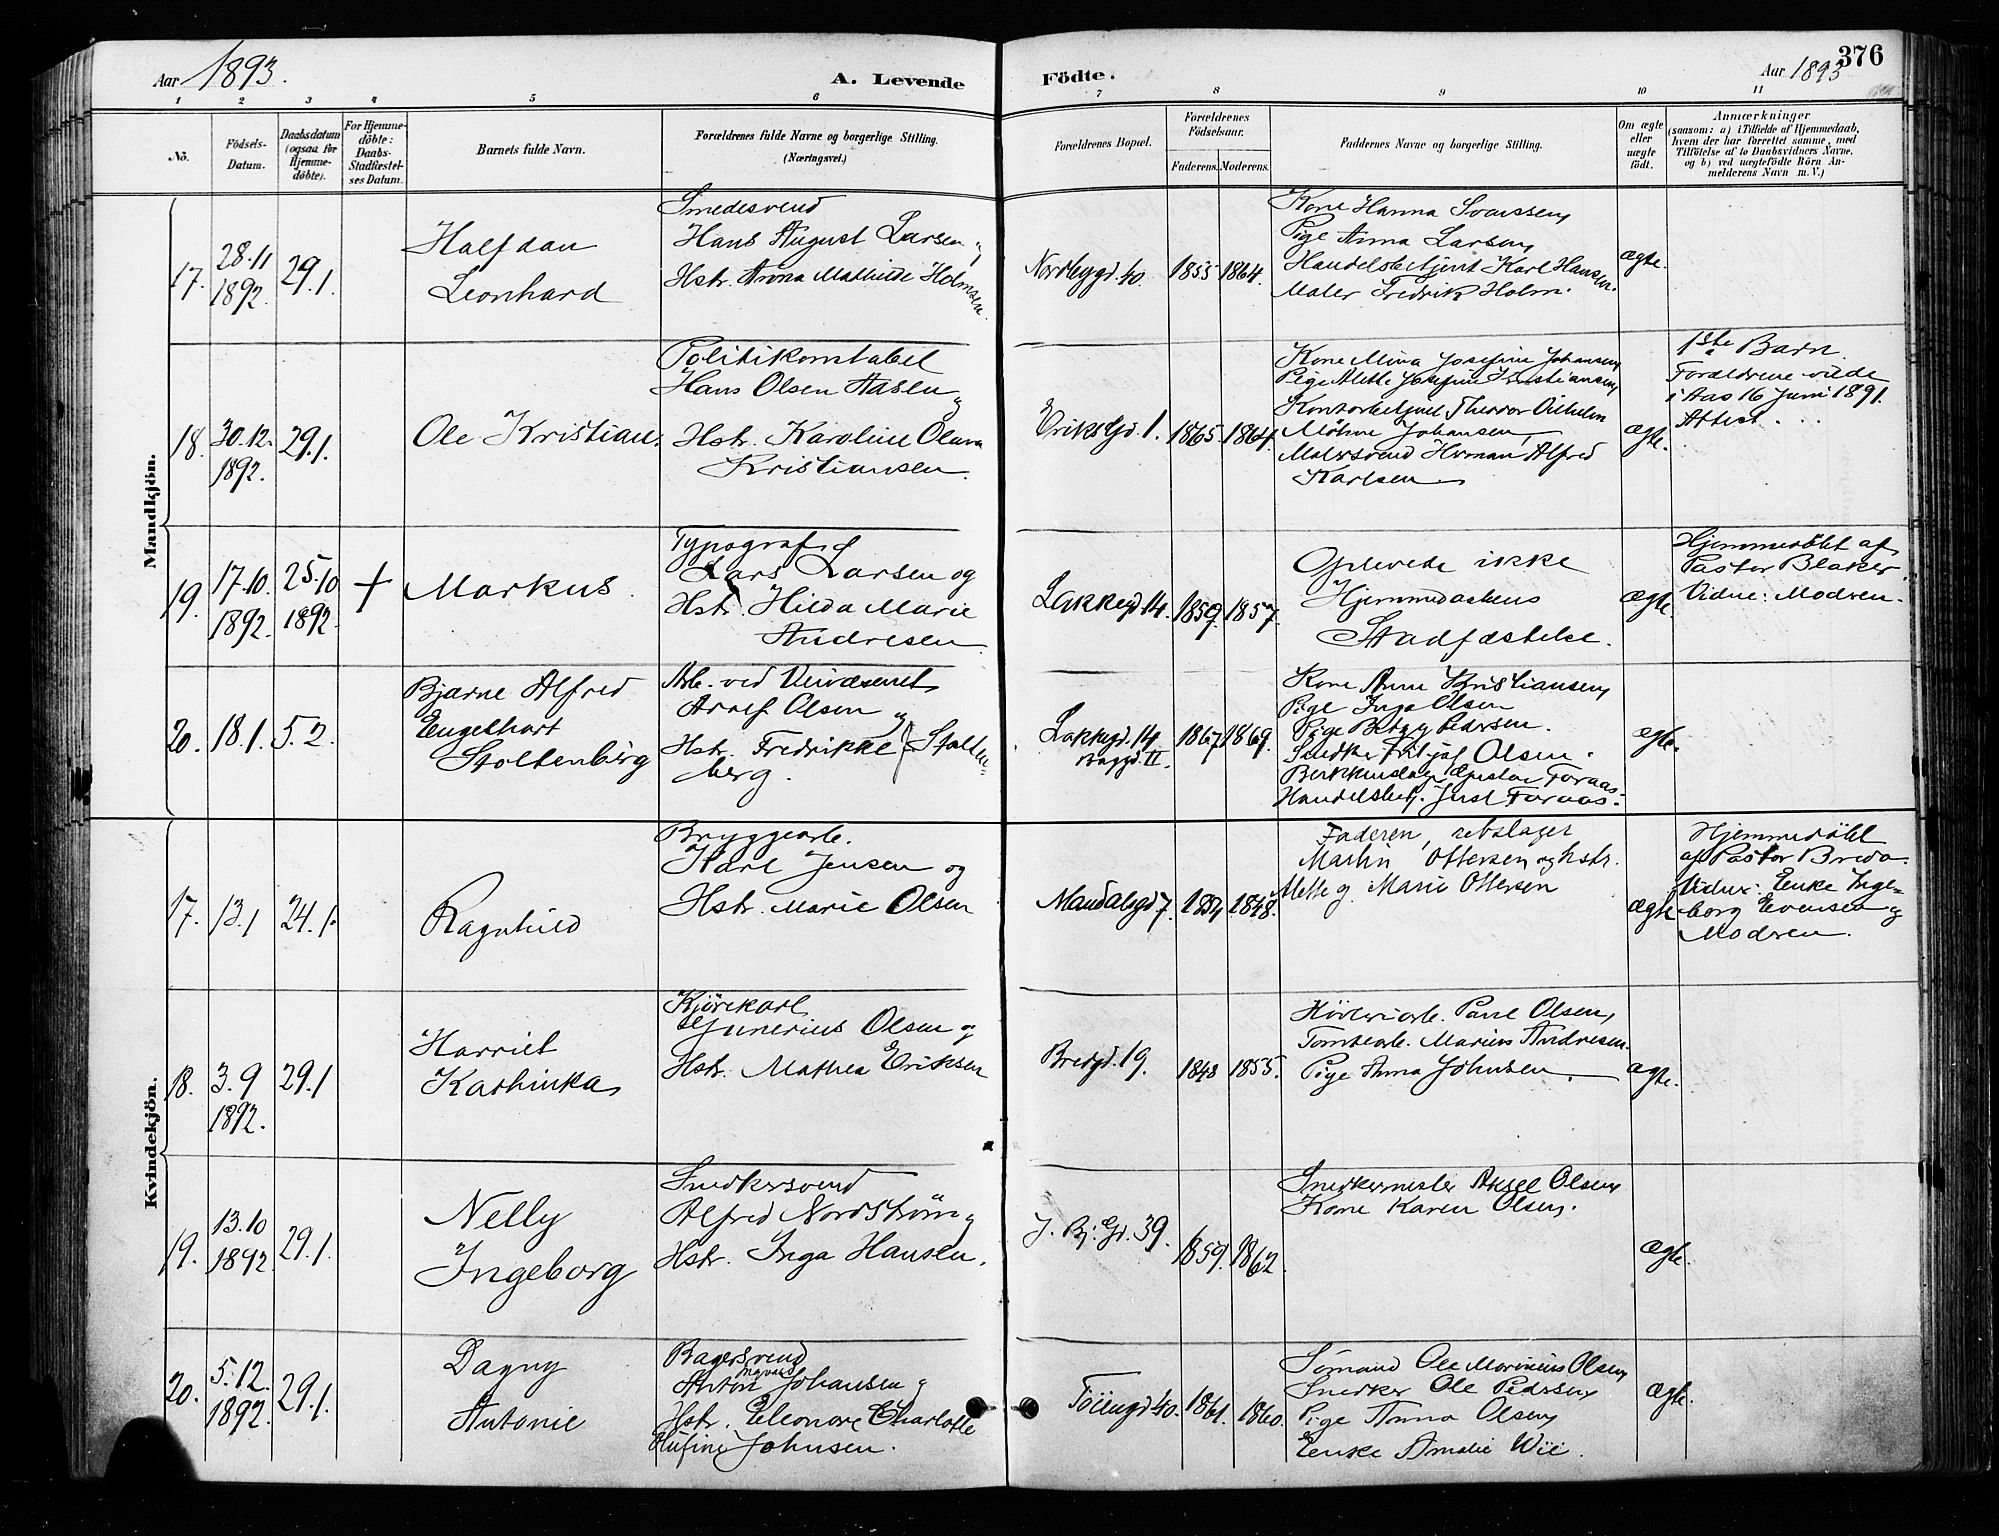 Aar 1893.
A. Levende
Födte.
Aar 1893
376
1 2 3 4 5 6 7 8 9 10 11
No.
Födsels-
Datum.
Daabsdatum
(ogsaa for
Hjemme-
döbte).
For Hjemme-
döbte:
Daabs-
Stadfæstel-
ses Datum.
Barnets fulde Navn.
Forældrenes fulde Navne og borgerlige Stilling.
(Næringsvei.)
Forældrenes Bopæl.
Forældrenes
Födselsaar.
Faderens. Moderens.
Faddernes Navne og borgerlige Stilling.
Om ægte
eller
uægte
födt.
Anmærkninger
(saasom: a) i Tilfælde af Hjemmedaab,
hvem der har forrettet samme, med
Tilföielse af to Daabsvidners Navne,
og b) ved uægtefödte Börn An-
melderens Navn m. V.)
Mandkjön.
17.
28.11
1892.
29.1.
Halfdan
Leonhard
Smedesvend
Hans August Larsen og
Hstr. Anna Mathilde Holmsen.
Nordbygd. 40.
1855
1864.
Kone Hanna Svanssen,
Pige Anna Larsen,
Handelsbetjent Karl Hansen.
Maler Fredrik Holm.
ægte.
18.
30.12.
1892.
29.1.
Ole Kristian.
Politikonstabel
Hans Olsen Aasen og
Hstr. Karoline Olava
Kristiansen.
Eriksgd. 1.
1865.
1864.
Kone Mina Josefine Johansen,
Pige Mette Josefine Kristiansen,
Kontorbetjent Theodor Vilhelm
Johansen,
Malersvend Herman Alfred
Karlsen
ægte.
1ste Barn.
Forældrene viede
i Aas 16 Juni 1891.
Attest...
19.
17.10.
1892.
25.10
1892.
+
Markus.
Typograf
Lars Larsen og
Hstr. Hilda Marie
Andresen.
Lakkegd. 14.
1859.
1857.
Oplevede ikke
Hjemmedaabens
Stadfæstelse.
ægte.
Hjemmedöbt af
Pastor Blaker.
Vidne: Modren.
20.
18.1.
5.2.
Bjarne Alfred
Engelhart
Stoltenberg
Arb. ved Veivæsenet
Adolf Olsen og
Hstr. Fredrikke Stolten-
berg.
Lakkegd. 14
Baggd. II.
1867
1869.
Kone Anne Kristiansen,
Pige Inga Olsen
Pige Betzy Pedersen.
Snedker Fritjof Olsen.
Gustav Foraas.
Handelsbetj. Just Foraas.
ægte.
Kvindekjön.
17.
13.1
24.1.
Ragnhild
Bryggearb.
Karl Jensen og
Hstr. Marie Olsen
Mandalsgd 7.
1854
1848.
Faderen, rebslager
Martin Ottersen og hstr.
Mette Marie Ottersen
ægte
Hjemmedöbt
af Pastor Breda.
Vidner: Enke Inge-
borg Evensen og
Modren.
18.
3.9
1892.
29.1
Harriet
Kathinka
Kjörekarl
Gunerius Olsen og
Hstr. Mathea Eriksen
Bredgd. 19.
1848
1855.
Paul Olsen,
Tomtearb. Marius Andresen.
Pige Anna Johnsen.
ægte.
19.
13.10
1892
29.1.
Nelly
Ingeborg
Snedkersvend
Alfred Nordström og
Hstr. Inga Hansen.
J. Bj. Gd. 39.
1859.
1862.
Snedkermester Aksel Olsen,
Kone Karen Olsen.
ægte.
20.
5.12.
1892.
29.1.
Dagny
Antonie
Bagersvend
Anton Johansen og
Hstr. Eleonore Charlotte
Johnsen.
Töiengd 40.
1861.
1860.
Sömand Ole Marinius Olsen,
Snedker Ole Pedersen,
Pige Anna Olsen,
Enke Amalie Wii.
ægte.